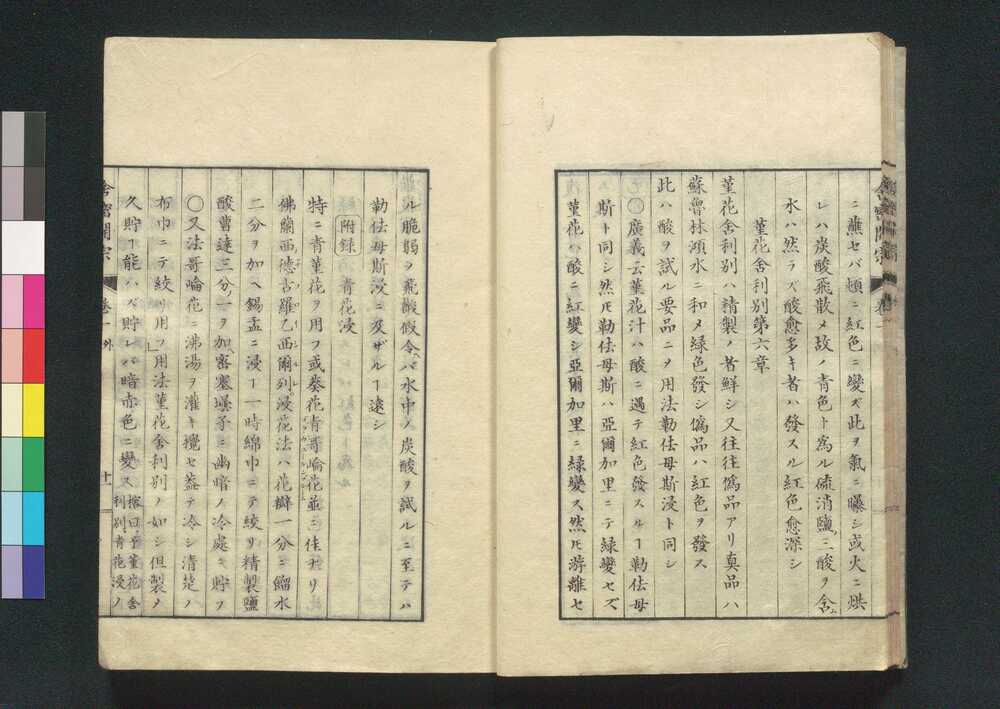 ニ蘸セバ頓ニ紅色ニ變ズ此ヲ氣ニ曝シ或火ニ烘
レハ炭酸飛散メ故ノ青色ト為ル硫消鹽三酸ヲ含ム
水ハ然ラズ酸愈多キ者ハ發スル紅色愈深シ
菫花舍利別第六章
菫花舍利別ハ精製ノ者鮮シ又往往僞品アリ真品ハ
蘇魯林溳水ニ和メ緑色發シ僞品ハ紅色ヲ發ス
此ハ酸ヲ試ル要品ニヲ用法勒佉母斯浸ト同シ
〇廣義云菫花汁ハ酸ニ遇テ紅色發スルヿ勒佉母
斯ト同シ然𪜈勒佉母斯ハ亞爾加里ニテ緑變セズ
菫花ハ酸ニ紅變シ亞爾加里ニ緑變ス然𪜈游離セ
舍密開宗 卷一
ル脆弱ヲ飛散假令バ水中ノ炭酸ヲ試ルニ至テハ
勒佉母斯浸ニ及ザルヿ遠シ
附録 青花浸
特ニ青菫花ヲ用フ或葵花青哥崘花並ニ佳ナリ
佛蘭西德古羅乙西爾列浸花法ハ花瓣一分ニ餾水
二分ヲ加ヘ錫盂ニ浸ヿ一時綿巾ニテ絞リ精製鹽
酸曹達三分一ヲ加ヘ密塞壜子ニ幽暗ノ冷處ニ貯フ
〇又法哥崘花ニ沸湯ヲ灌キ攪セ葢テ冷シ清楚ノ
布巾ニテ絞リ用フ」用法菫花舍利別ノ如シ但製メ
久貯ヿ能ハズ貯レバ暗赤色ニ變ス 榕曰予菫花舍
利別青花浸ノ
舍密開宗 卷一 外 十一